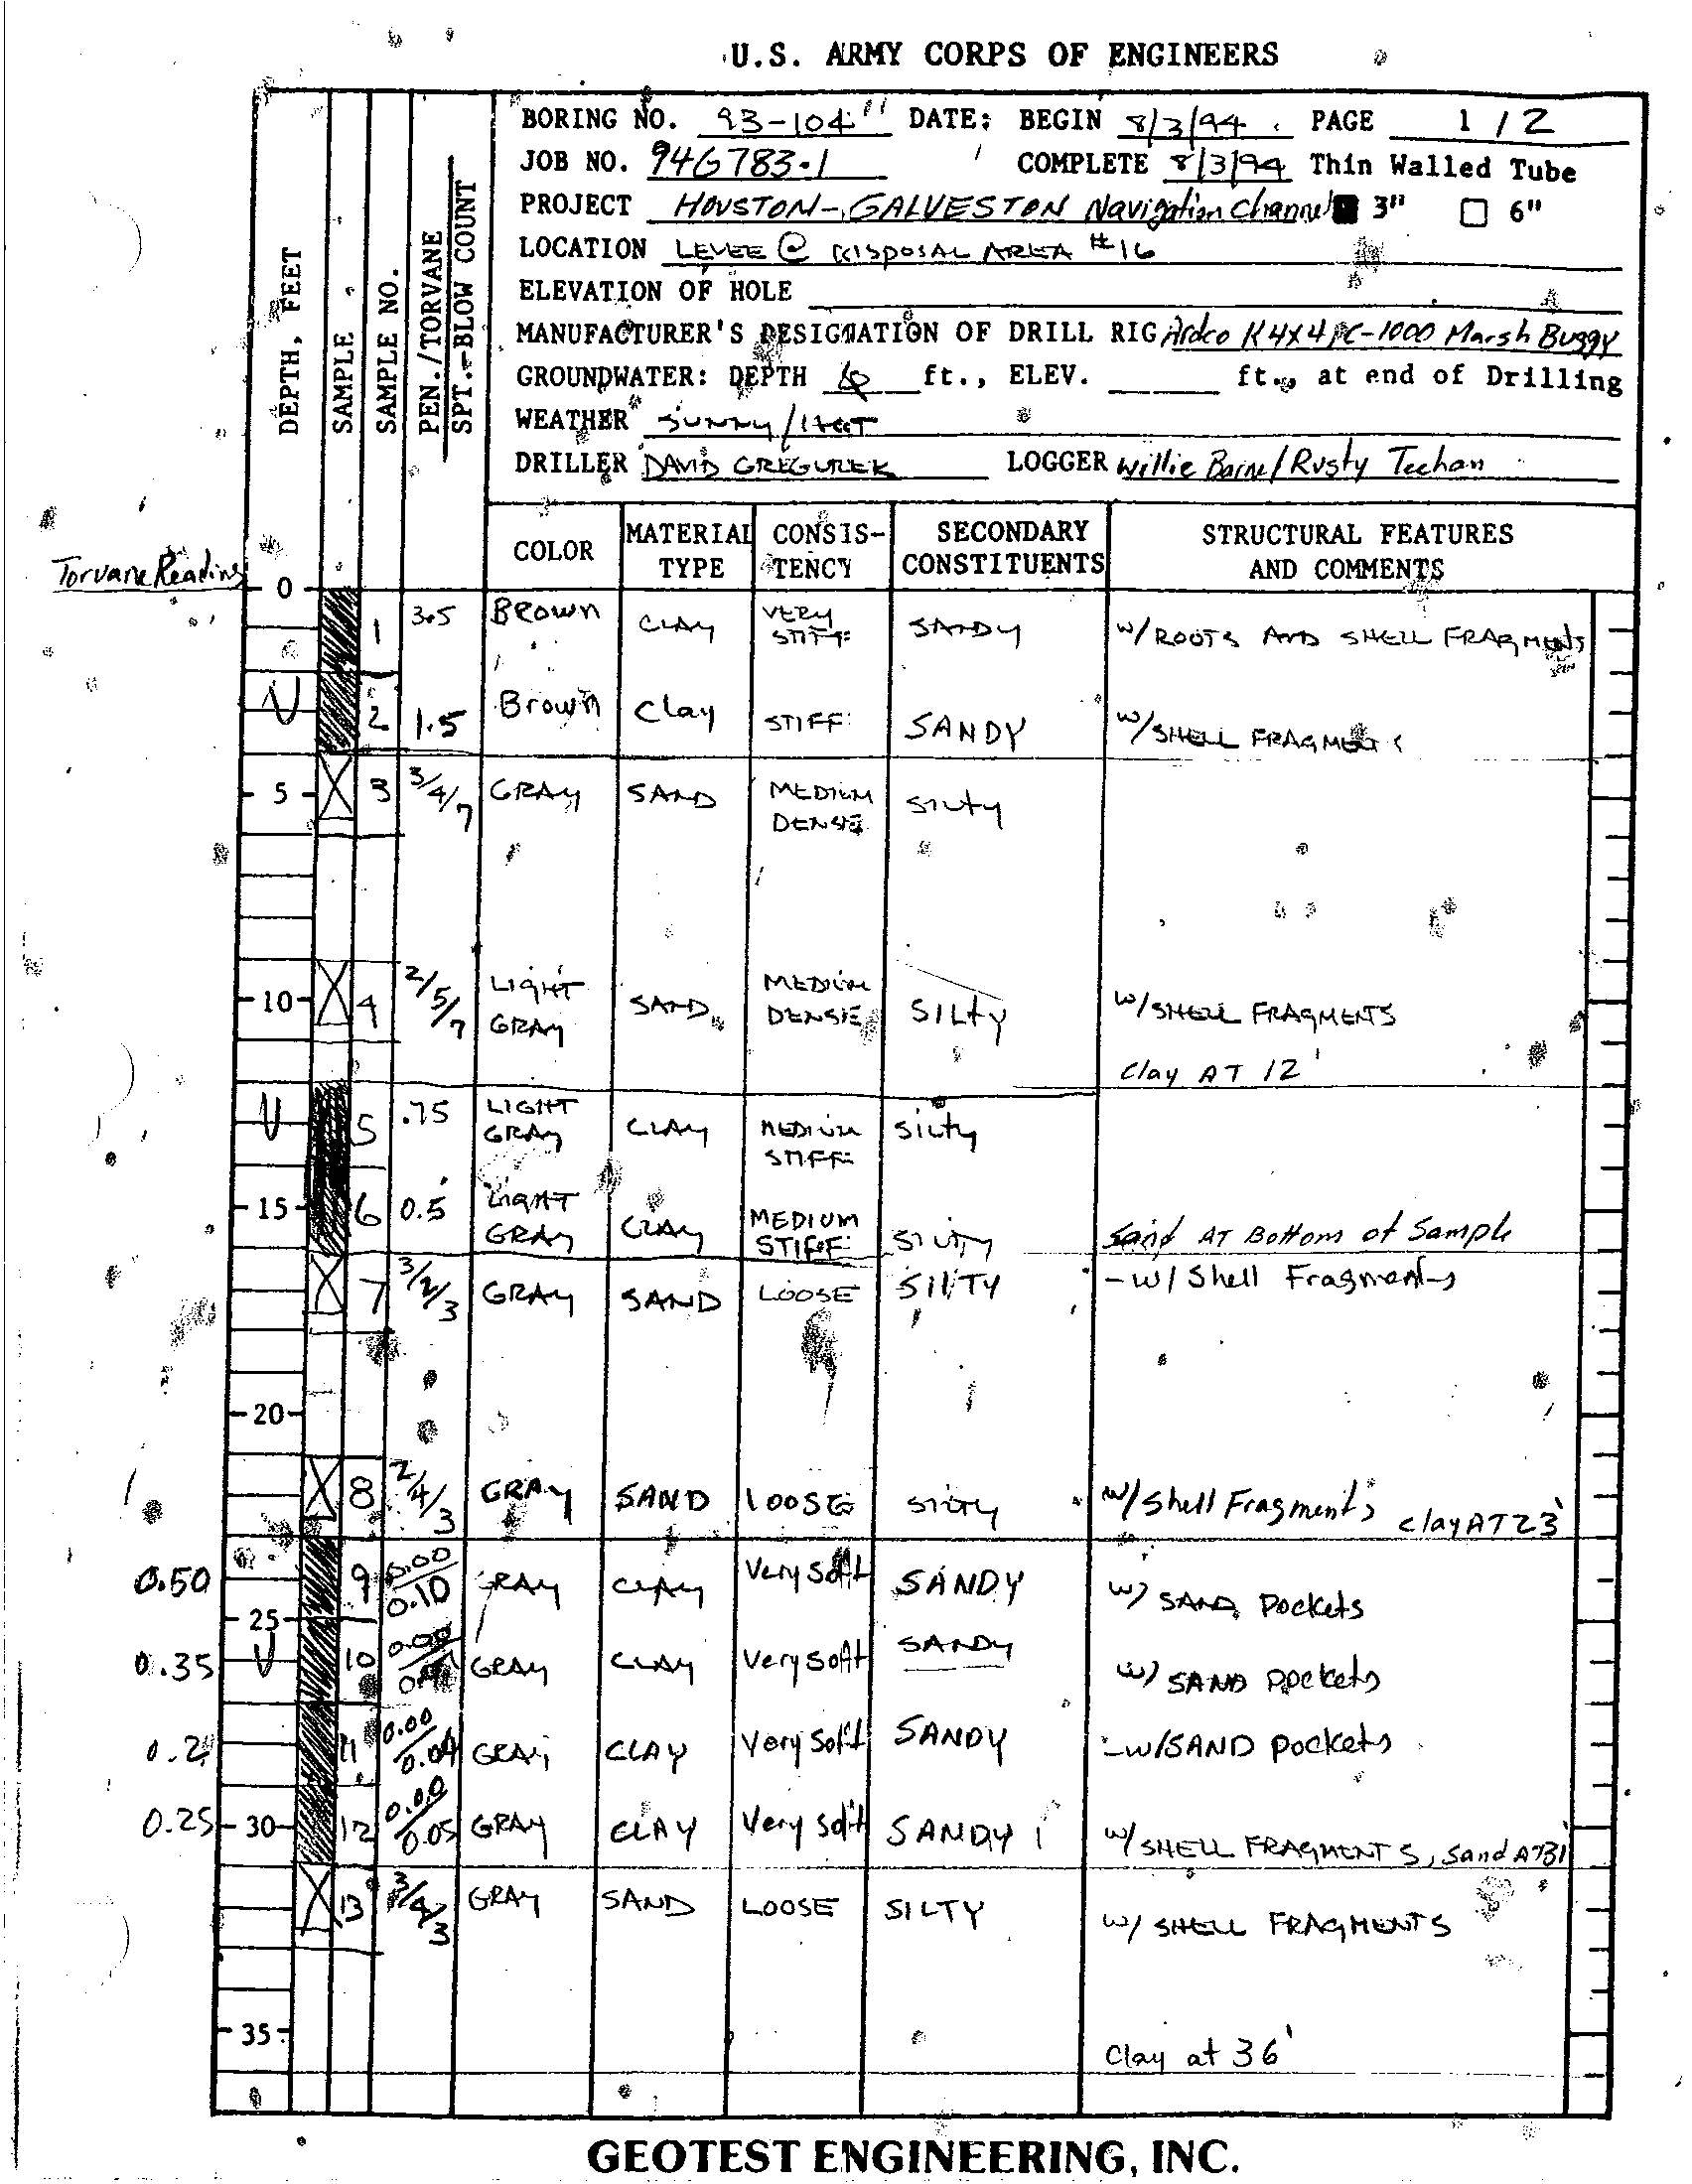 U.S. ARMY CORPS OF ENGINEERS
BORING NO. 93-104 DATE: BEGIN 8/3/94 PAGE 1 / 2
JOB NO. 94G783.1 COMPLETE 8/3/94 Thin Walled Tube
PROJECT HOUSTON-GALVESTON Navigation Channel 3" 6"
LOCATION LEVEE @ DISPOSAL AREA #16
ELEVATION OF HOLE
MANUFACTURER'S DESIGNATION OF DRILL RIG Ardco K 4X4 PC-1000 Marsh Buggy
GROUNDWATER: DEPTH ft., ELEV. ft., at end of Drilling
WEATHER SUNNY/HOT
DRILLER DAVID GREGUREK LOGGER Willie Baine/Rusty Techan
DEPTH, FEET
SAMPLE
SAMPLE NO.
PEN./TORVANE
SPT.-BLOW COUNT
COLOR MATERIAL TYPE CONSIS-TENCY SECONDARY CONSTITUENTS STRUCTURAL FEATURES AND COMMENTS
Torvane Reading
0
1 3.5 Brown CLAY VERY STIFF SANDY w/ROOTS AND SHELL FRAGMENTS
2 1.5 Brown Clay STIFF SANDY w/SHELL FRAGMENTS
5 3 3/4/7 GRAY SAND MEDIUM DENSE SILTY
10 4 2/5/7 LIGHT GRAY SAND MEDIUM DENSE SILTY w/SHELL FRAGMENTS
Clay AT 12'
5 .75 LIGHT GRAY CLAY MEDIUM STIFF SILTY
15 6 0.5 LIGHT GRAY CLAY MEDIUM STIFF SILTY Sand AT Bottom of Sample
7 3/2/3 GRAY SAND LOOSE SILTY -w/ Shell Fragments
20
8 2/4/3 GRAY SAND LOOSE SILTY w/ Shell Fragments Clay AT 23'
0.50 9 0.00/0.10 GRAY CLAY Very Soft SANDY w/ SAND Pockets
25
0.35 10 0.00 GRAY CLAY Very Soft SANDY w/ SAND Pockets
11 0.00/0.04 GRAY CLAY Very Soft SANDY -w/SAND Pockets
0.25 30 12 0.00/0.05 GRAY CLAY Very Soft SANDY w/SHELL FRAGMENTS, Sand AT 31'
13 3/4/3 GRAY SAND LOOSE SILTY w/ SHELL FRAGMENTS
35
Clay at 36'
GEOTEST ENGINEERING, INC.